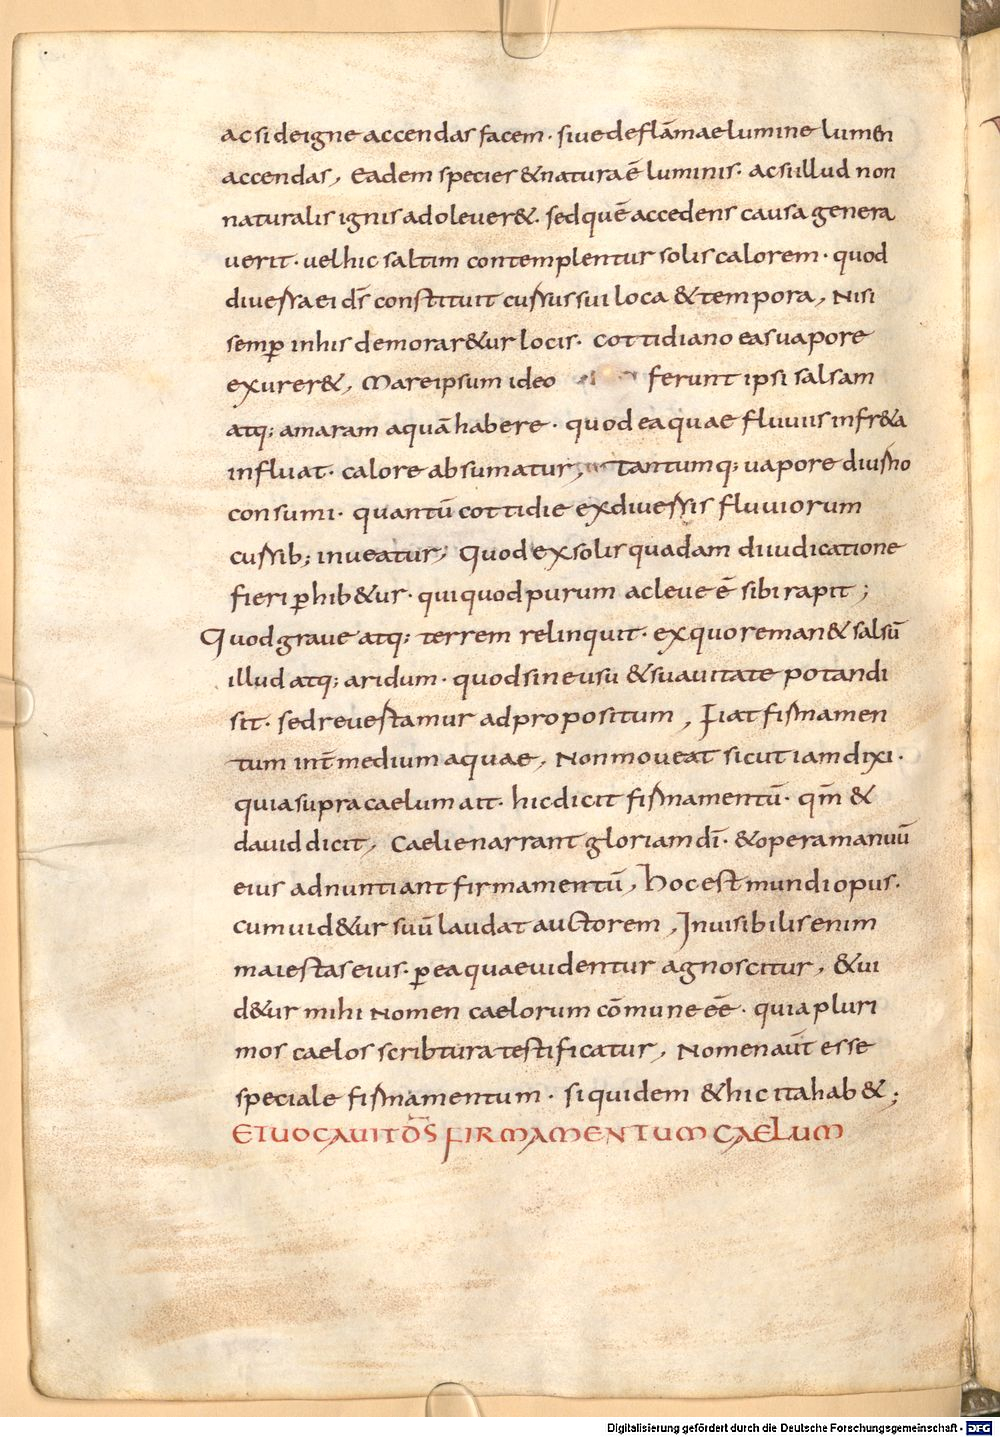 ac si de igne accendas facem · siue de flāmae lumine lumen
accendas, Eadem species & natura ē luminis · ac si illud non
naturalis ignis adoleuer& · sed quē accedens causa genera
uerit · uel hic saltim contemplentur solis calorem · quod
diuersa ei d̄s constituit cursus sui loca & tempora, Nisi
semp̄ in his demorar&ur locis · cottidiano eas uapore
exurer&, Mare ipsum ideo ferunt ipsi salsam
atq; amaram aquā habere · quod ea quae fluuiis infr&a
influat · calore absumatur, tantumq; uapore diurno
consumi · quantū cottidie ex diuersis fluuiorum
cursib; inueatur, Quod ex solis quadam diiudicatione
fieri p̄hib&ur · qui quod purum ac leue ē sibi rapit ;
Quod graue atq; terrem relinquit · ex quo reman& salsū
illud atq; aridum · quod sine usu & suauitate potandi
sit · sed reuertamur ad propositum, Fiat firmamen
tum int̄ medium aquae, Non moueat sicut iam dixi ·
quia supra caelum ait · hic dicit firmamentū · qm̄ &
dauid dicit, Caeli enarrant gloriam dī · & opera manuū
eius adnuntiant firmamentū, Hoc est mundi opus ·
cum uid&ur suū laudat auctorem, Inuisibilis enim
maiestas eius · p̄ ea quae uidentur agnoscitur, & ui
d&ur mihi Nomen caelorum cōmune eē · quia pluri
mos caelos scribtura testificatur, Nomen aūt esse
speciale firmamentum · siquidem & hic ita hab& ;
ET UOCAVIT D̄S FIRMAMENTUM CAELUM
Digitalisierung gefördert durch die Deutsche Forschungsgemeinschaft - DFG